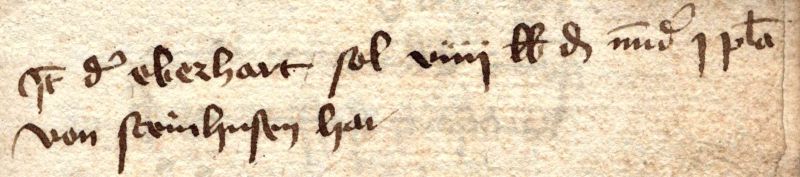 It d' eberhart sol viiij lb d mind' j pla
von steinhusen har